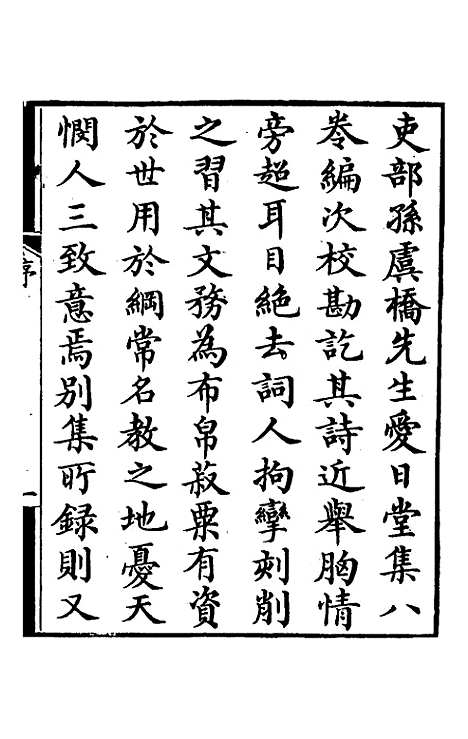 吏部孫虞橋先生愛日堂集八
卷編次校勘訖其詩近舉胸情
旁超耳目絕去詞人拘攣刻削
之習其文務為布帛菽粟有資
於世用於綱常名教之地憂天
憫人三致意焉別集所録則又
序
一